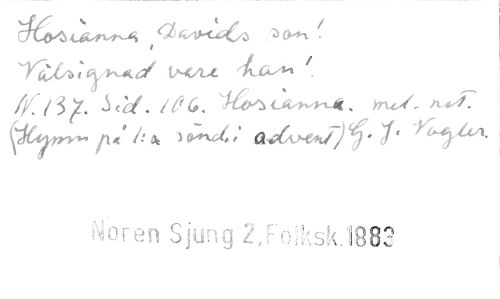 Hosianna, Davids son!
Välsignad vare han!
N. 137. Sid. 106. Hosianna. mel. not.
(Hymn på 1:a sönd. i advent) G. J. Vogler.
Noren Sjung 2, Folksk. 1883